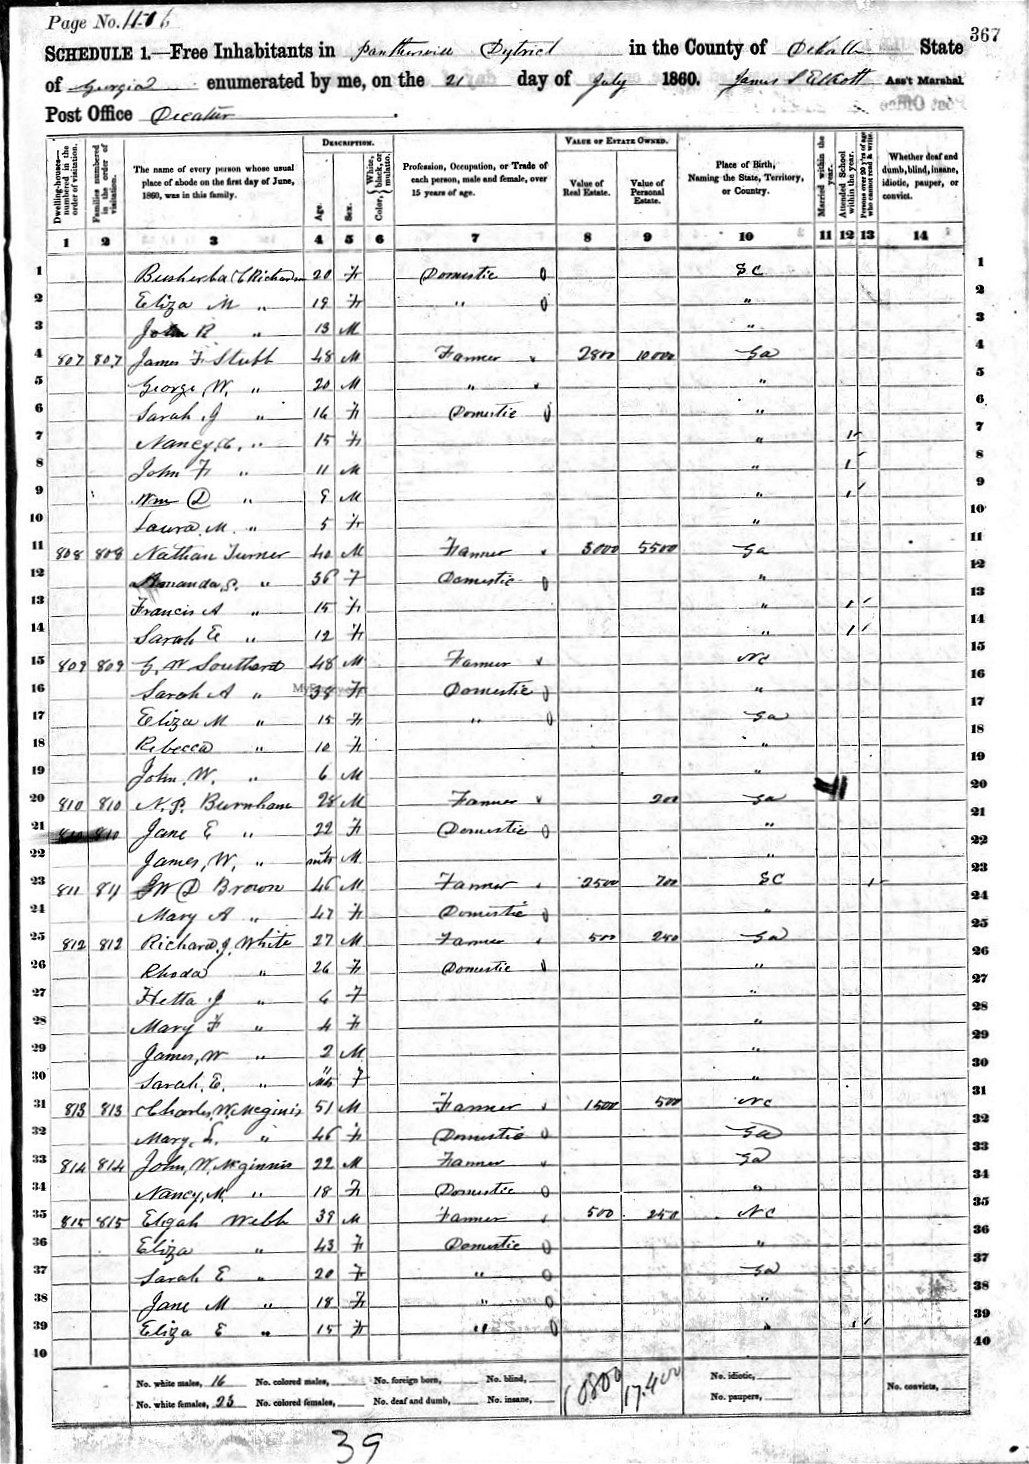 Page No. 406
367
SCHEDULE 1.—Free Inhabitants in Panthersvill Dystrict in the County of DeKalb State
of Georgia enumerated by me, on the 21 day of July 1860. James Ass't Marshal
Post Office Decatur
Dwelling-houses—numbered in the order of visitation.
Families numbered in the order of visitation.
The name of every person whose usual place of abode on the first day of June, 1860, was in this family.
DESCRIPTION.
Age.
Sex.
Color, { White, black, or mulatto. }
Profession, Occupation, or Trade of each person, male and female, over 15 years of age.
VALUE OF ESTATE OWNED.
Value of Real Estate.
Value of Personal Estate.
Place of Birth, Naming the State, Territory, or Country.
Married within the year.
Attended School within the year.
Persons over 20 y'rs of age who cannot read & write.
Whether deaf and dumb, blind, insane, idiotic, pauper, or convict.
1 2 3 4 5 6 7 8 9 10 11 12 13 14
1 20 F Domestic SC 1
2 Eliza M " 19 F " " 2
3 John R " 13 M " 3
4 807 807 James F Stubb 48 M Farmer 2800 10000 Ga 4
5 George W. " 20 M " " 5
6 Sarah J " 16 F Domestic " 6
7 Nancy C. " 15 F " 1 7
8 John F " 11 M " 1 8
9 Wm D " 9 M " 1 9
10 Laura M. " 5 F " 10
11 808 808 Nathan Turner 40 M Farmer 3000 5500 Ga 11
12 Amanda S. " 36 F Domestic " 12
13 Francis A " 15 F " 1 13
14 Sarah E " 12 F " 1 14
15 809 809 G. W. Southard 48 M Farmer NC 15
16 Sarah A " 38 F Domestic " 16
17 Eliza M " 15 F " Ga 17
18 Rebecca " 10 F " 18
19 John. W. " 6 M " 19
20 810 810 N. P. Burnham 28 M Farmer 200 Ga 20
21 810 810 Jane E " 22 F Domestic " 21
22 James, W, " mts M " 22
23 811 811 W D Brown 46 M Farmer 2500 700 SC 1 23
24 Mary A " 47 F Domestic " 24
25 812 812 Richard. J. White 27 M Farmer 500 250 Ga 25
26 Rhoda " 26 F Domestic " 26
27 Hetta J " 6 F " 27
28 Mary F " 4 F " 28
29 James, W " 2 M " 29
30 Sarah. E. " 11 mts F " 30
31 813 813 Charles, W. Mcginis 51 M Farmer 1500 500 NC 31
32 Mary, L. " 46 F Domestic Ga 32
33 814 814 John, W. McGinnis 22 M Farmer Ga 33
34 Nancy, M. " 18 F Domestic " 34
35 815 815 Eligah Webb 39 M Farmer 500 250 NC 35
36 Eliza " 43 F Domestic " 36
37 Sarah E " 20 F " Ga 37
38 Jane M " 18 F " " 38
39 Eliza E " 15 F " " 1 39
10 40
No. white males, 16 No. colored males, No. foreign born, No. blind, No. idiotic,
No. white females, 23 No. colored females, No. deaf and dumb, No. insane, 10800 17,400 No. paupers, No. convicts,
39